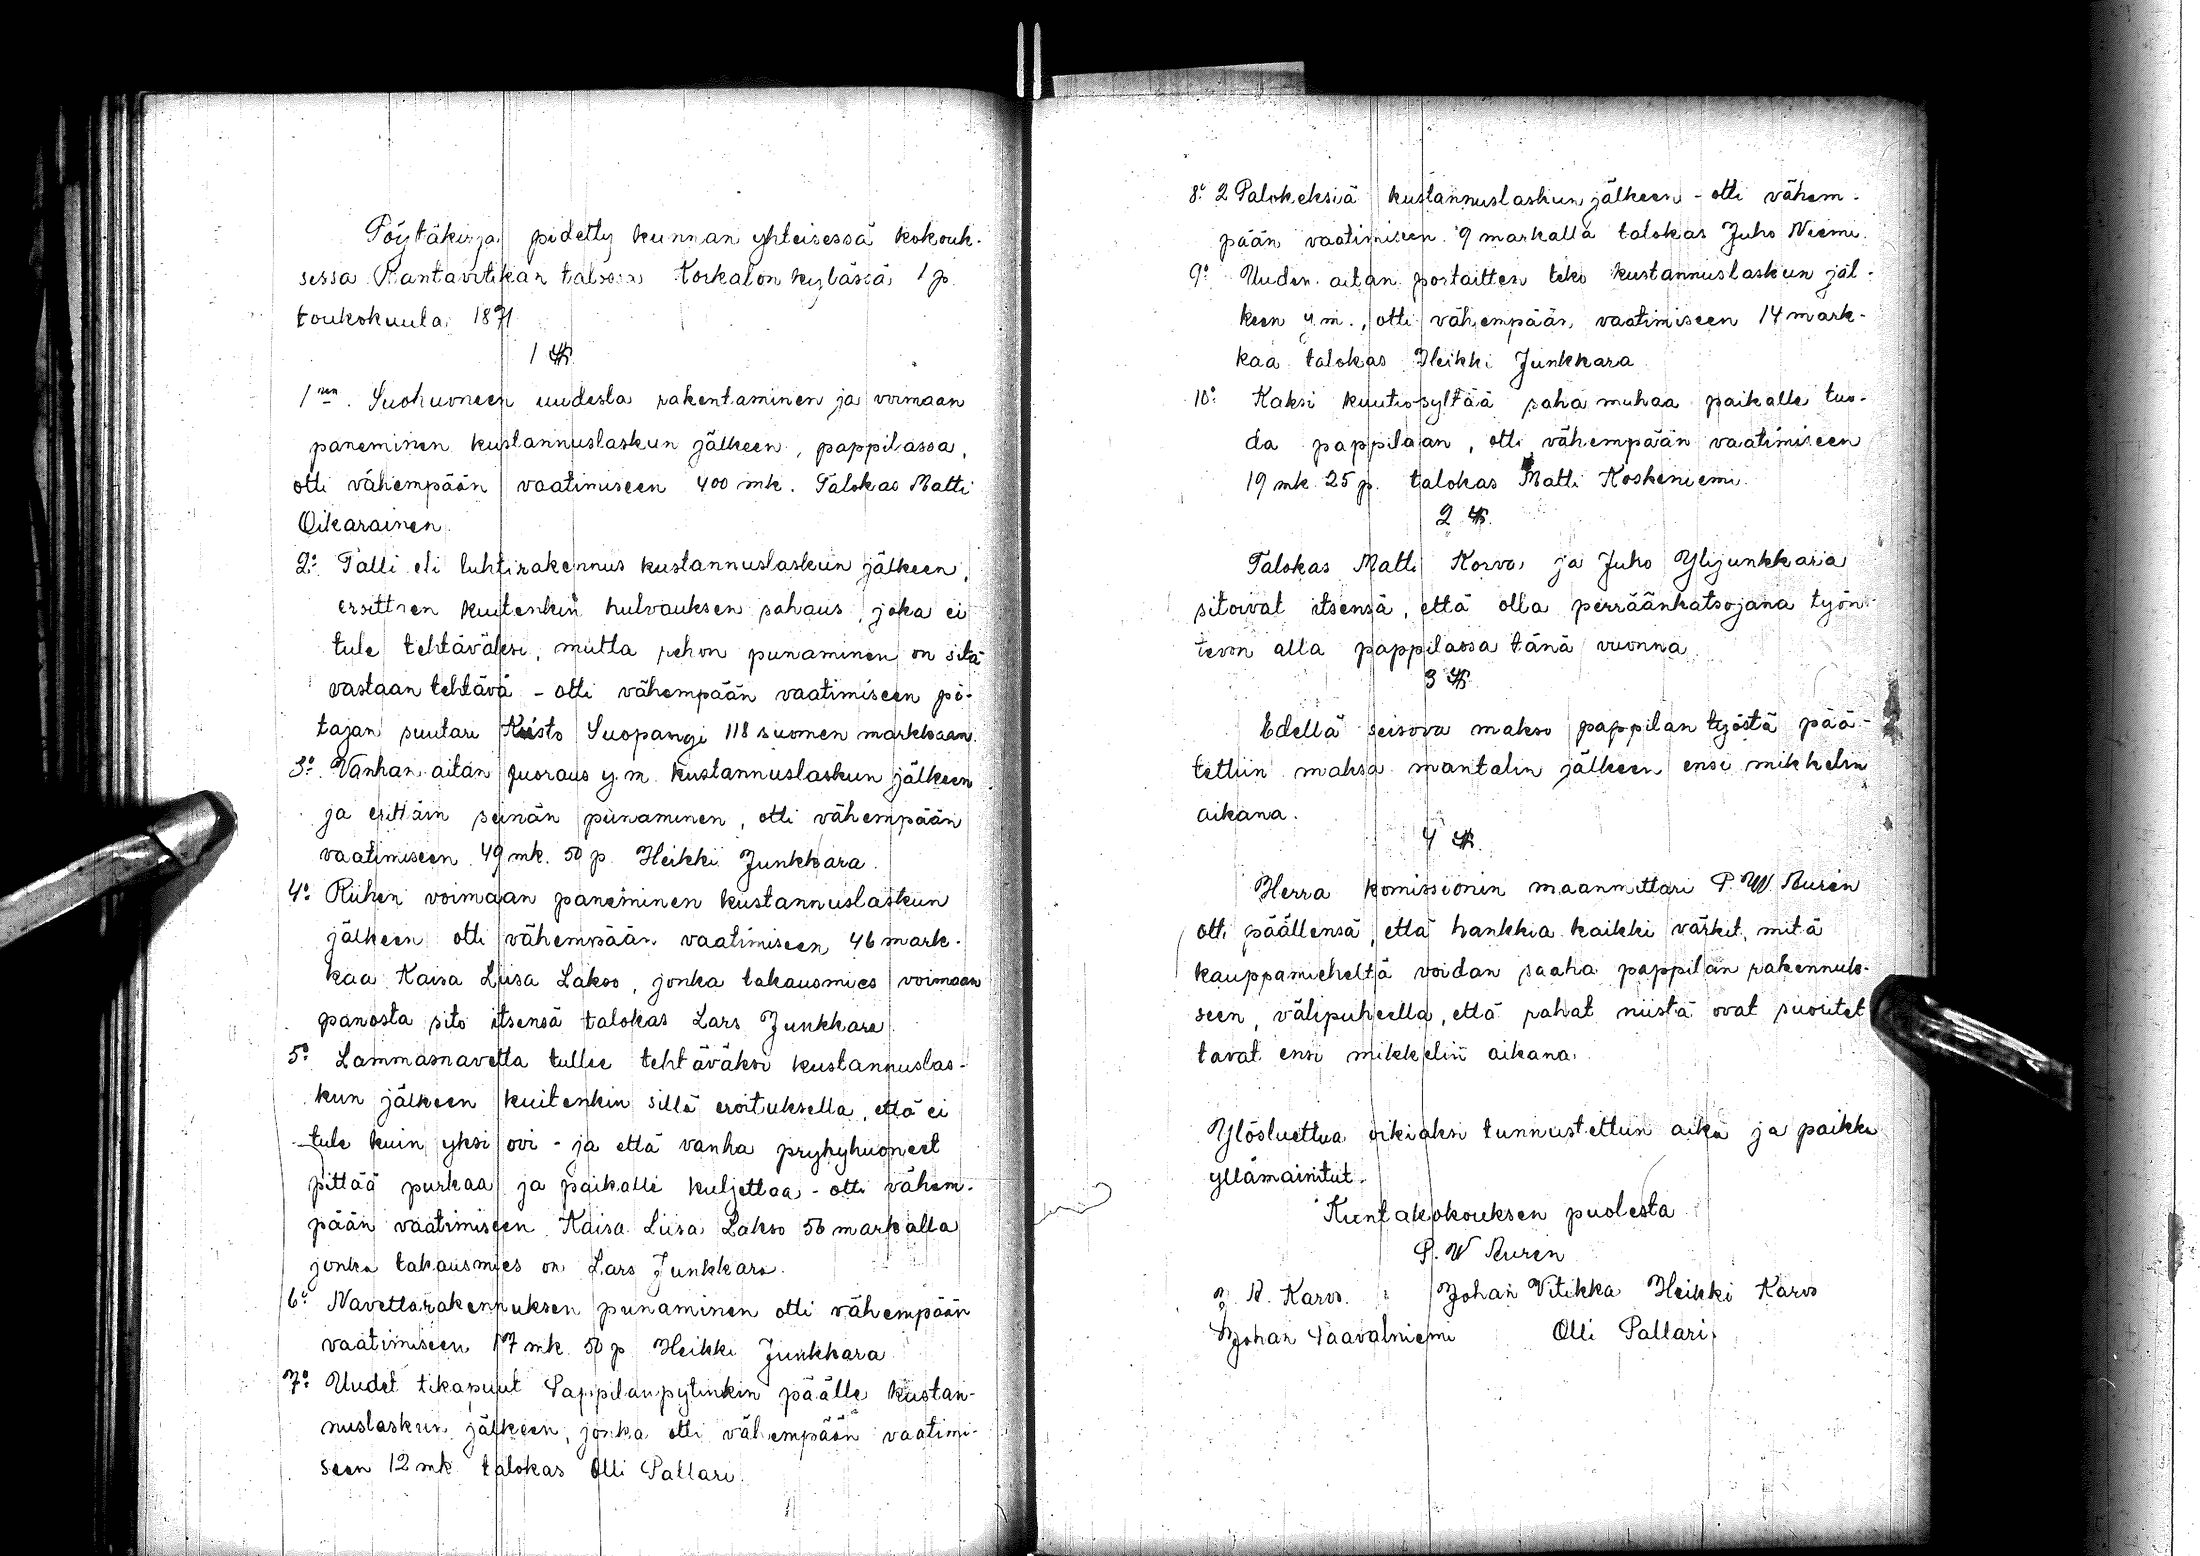 Pöytäkirja pidetty kunnan yhteisessä kokouk-
sessa Rantavitikan talossa Korkalon kylässä 1 p.
toukokuuta 1871
1 §.
1nen. Suohuoneen uudesta rakentaminen ja voimaan
paneminen kustannuslaskun jälkeen, pappilassa,
otti vähempään vaatimiseen 400 mk. Talokas Matti
Oikarainen.
2o. Talli eli luhtirakennus kustannuslaskun jälkeen,
erittren kuitenkin hulvauksen sahaus, joka ei
tule tehtäväksi, mutta rehon punaminen on sitä
vastaan tehtävä - otti vähempään vaatimiseen pi-
tajan suutari Kristo Suopangi 118 suomen markkaan.
3o. Vanhan aitan juoraus y.m. kustannuslaskun jälkeen
ja erittäin seinän punaminen, otti vähempään
vaatimiseen 49 mk. 50 p. Heikki Junkkara.
4o. Riihen voimaan paneminen kustannuslaskun
jälkeen otti vähempään vaatimiseen 46 mark-
kaa Kaisa Liisa Lakso, jonka takausmies voimaan
panosta sito itsensä talokas Lars Junkkara.
5o. Lammasnavetta tullee tehtäväksi kustannuslas-
kun jälkeen kuitenkin sillä eroituksella, että ei
tule kuin yksi ovi - ja että vanha pryhyhuoneet
pittää purkaa ja paikalle kuljettaa - otti vähem-
pään vaatimiseen Kaisa Liisa Lakso 56 markalla
jonka takausmies on Lars Junkkara.
6o. Navettarakennuksen punaminen otti vähempään
vaatimiseen 17 mk. 50 p Heikki Junkkara
7o. Uudet tikapuut Pappilanpytinkin päälle kustan-
nuslaskun jälkeen, jonka otti vähempään vaatimi-
seen 12 mk talokas Olli Pallari.
8o. 2 Palokeksiä kustannuslaskun jälkeen - otti vähem-
pään vaatimiseen 9 markalla talokas Juho Niemi.
9o. Uuden aitan portaitten teko kustannuslaskun jäl-
keen y.m., otti vähempään vaatimiseen 14 mark-
kaa talokas Heikki Junkkara
10o. Kaksi kuutiosyltää saha muhaa paikalle tuo-
da pappilaan, otti vähempään vaatimiseen
19 mk 25 p. talokas Matti Koskeniemi.
2 §.
Talokas Matti Korvo, ja Juho Ylijunkkaria
sitoivat itsensä, että olla perräänkatsojana työn
teon alla pappilassa tänä vuonna.
3 §.
Edellä seisova makso pappilan työstä pää-
tettiin maksa mantalin jälkeen ensi mikkelin
aikana.
4 §.
Herra komissionin maanmittari P. W. Auren
otti päällensä, että hankkia kaikki värkit, mitä
kauppamieheltä voidan saaha pappilan rakennuk-
seen, välipuheella, että rahat niistä ovat suoritet
tavat ensi mikkelin aikana.
Ylösluettua oikiaksi tunnustettiin aika ja paikka
yllämainitut.
Kuntakokouksen puolesta
P. W Auren
J. A. Karvo. Johan Vitikka Heikki Karvo
Johan Paavalniemi Olli Pallari.